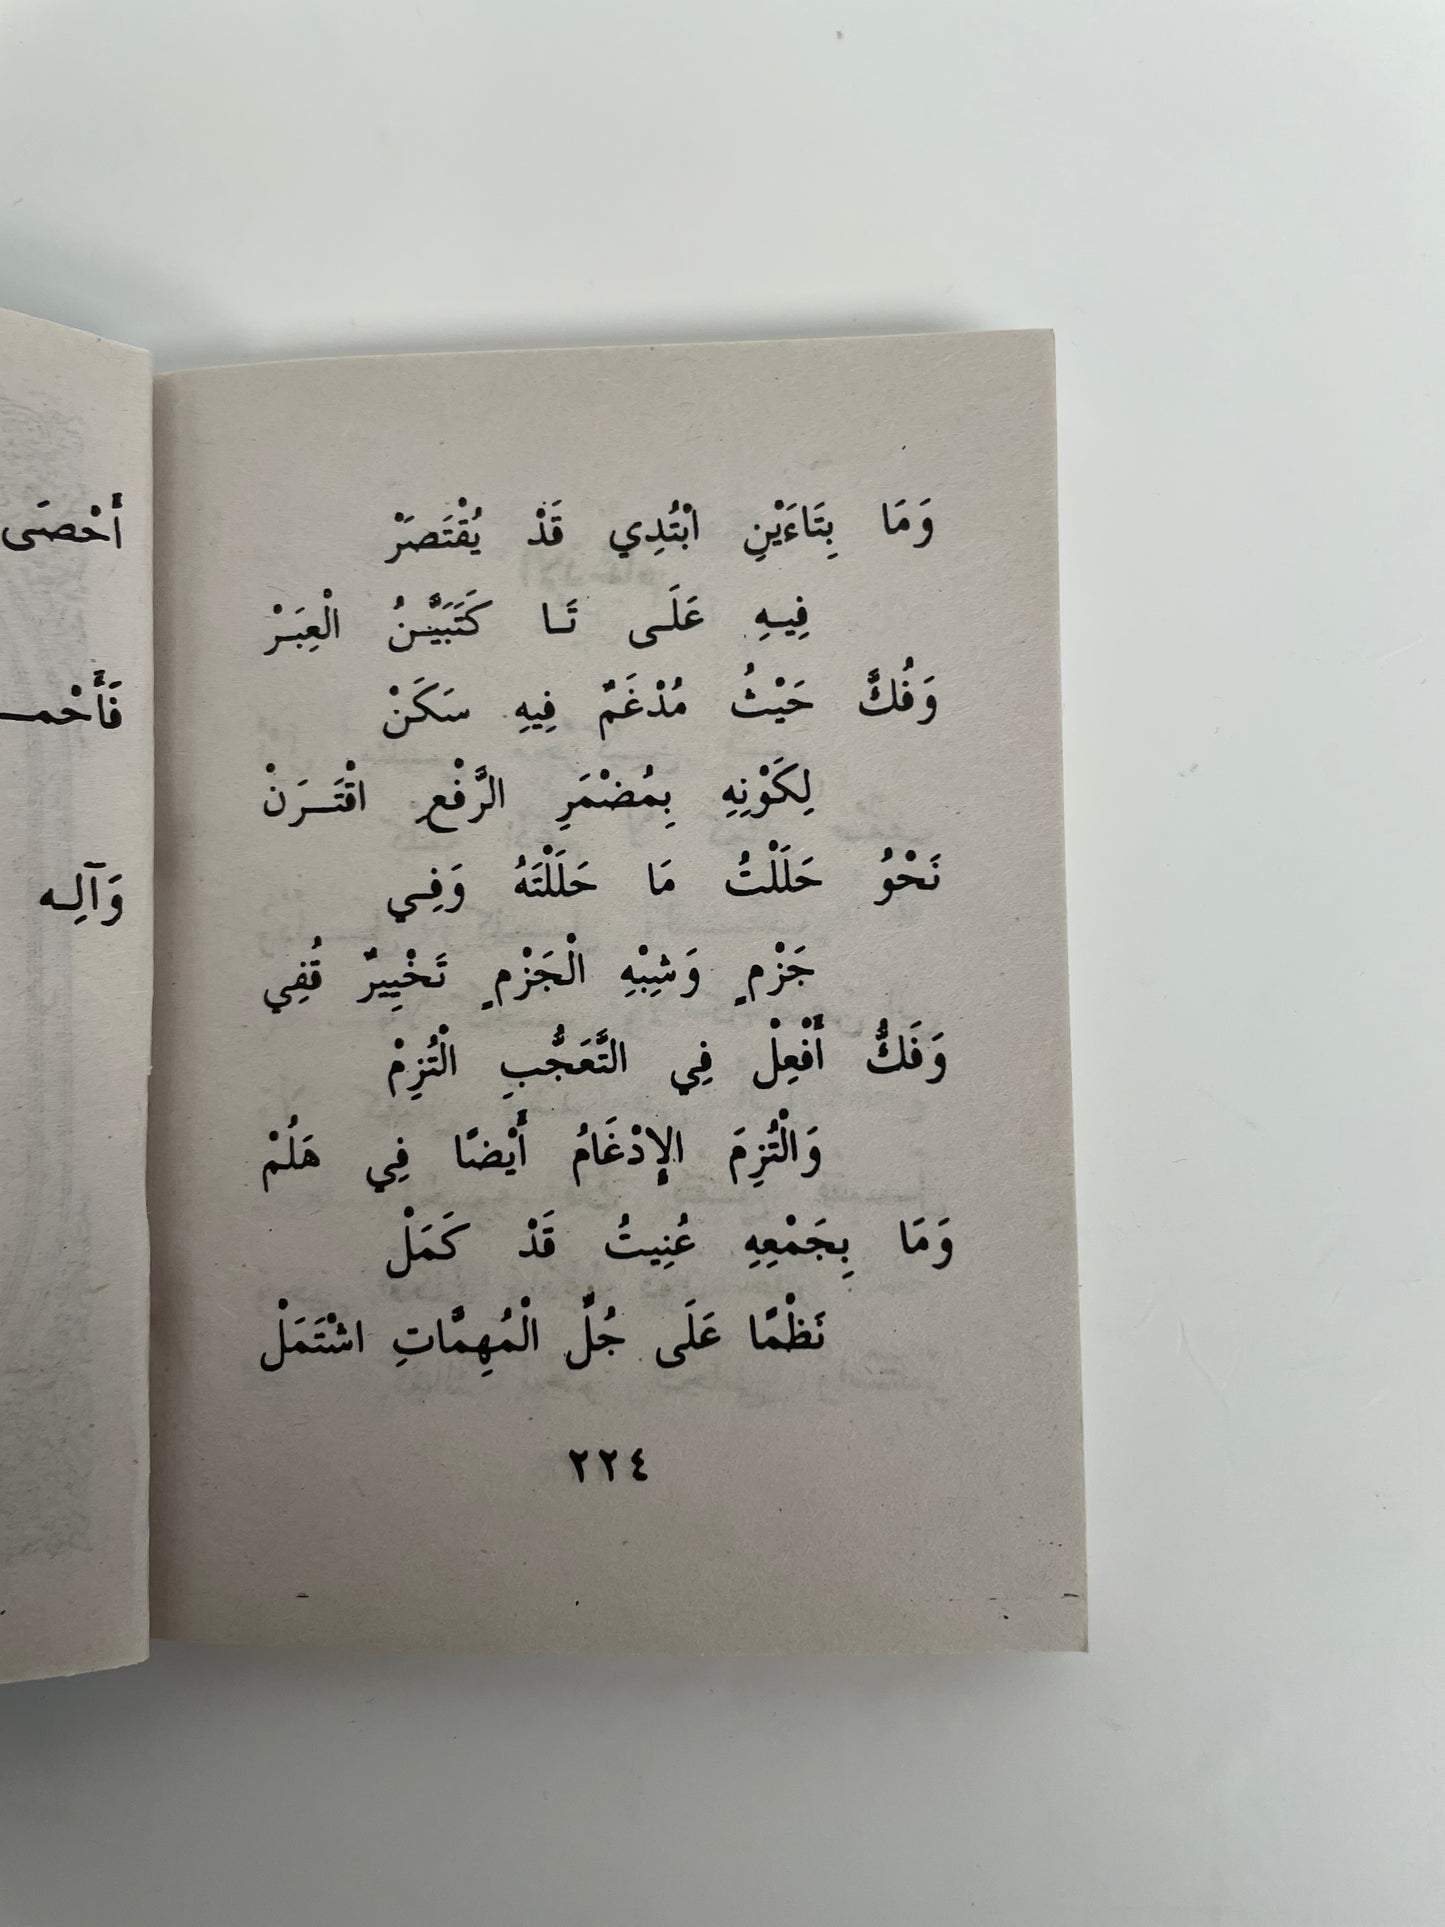 وَمَا بِتَاءَيْنِ ابْتُدِي قَدْ يُقْتَصَرْ
فِيـهِ عَلَـى تَـا كَتَبَيَّـنُ الْعِبَـرْ
وَفُكَّ حَيْثُ مُدْغَمٌ فِيهِ سَكَنْ
لِكَوْنِهِ بِمُضْمَرِ الرَّفْعِ اقْتَـرَنْ
نَحْوُ حَلَلْتُ مَا حَلَلْتَهُ وَفِـي
جَزْمٍ وَشِبْهِ الْجَزْمِ تَخْيِيرٌ قُفِي
وَفَكُّ أَفْعِلْ فِي التَّعَجُّبِ الْتُزِمْ
وَالْتُزِمَ الإِدْغَامُ أَيْضًا فِي هَلُمْ
وَمَا بِجَمْعِهِ عُنِيتُ قَدْ كَمَلْ
نَظْمًا عَلَى جُلِّ الْمُهِمَّاتِ اشْتَمَلْ
٢٢٤
أَحْصَى
وَآلِـه